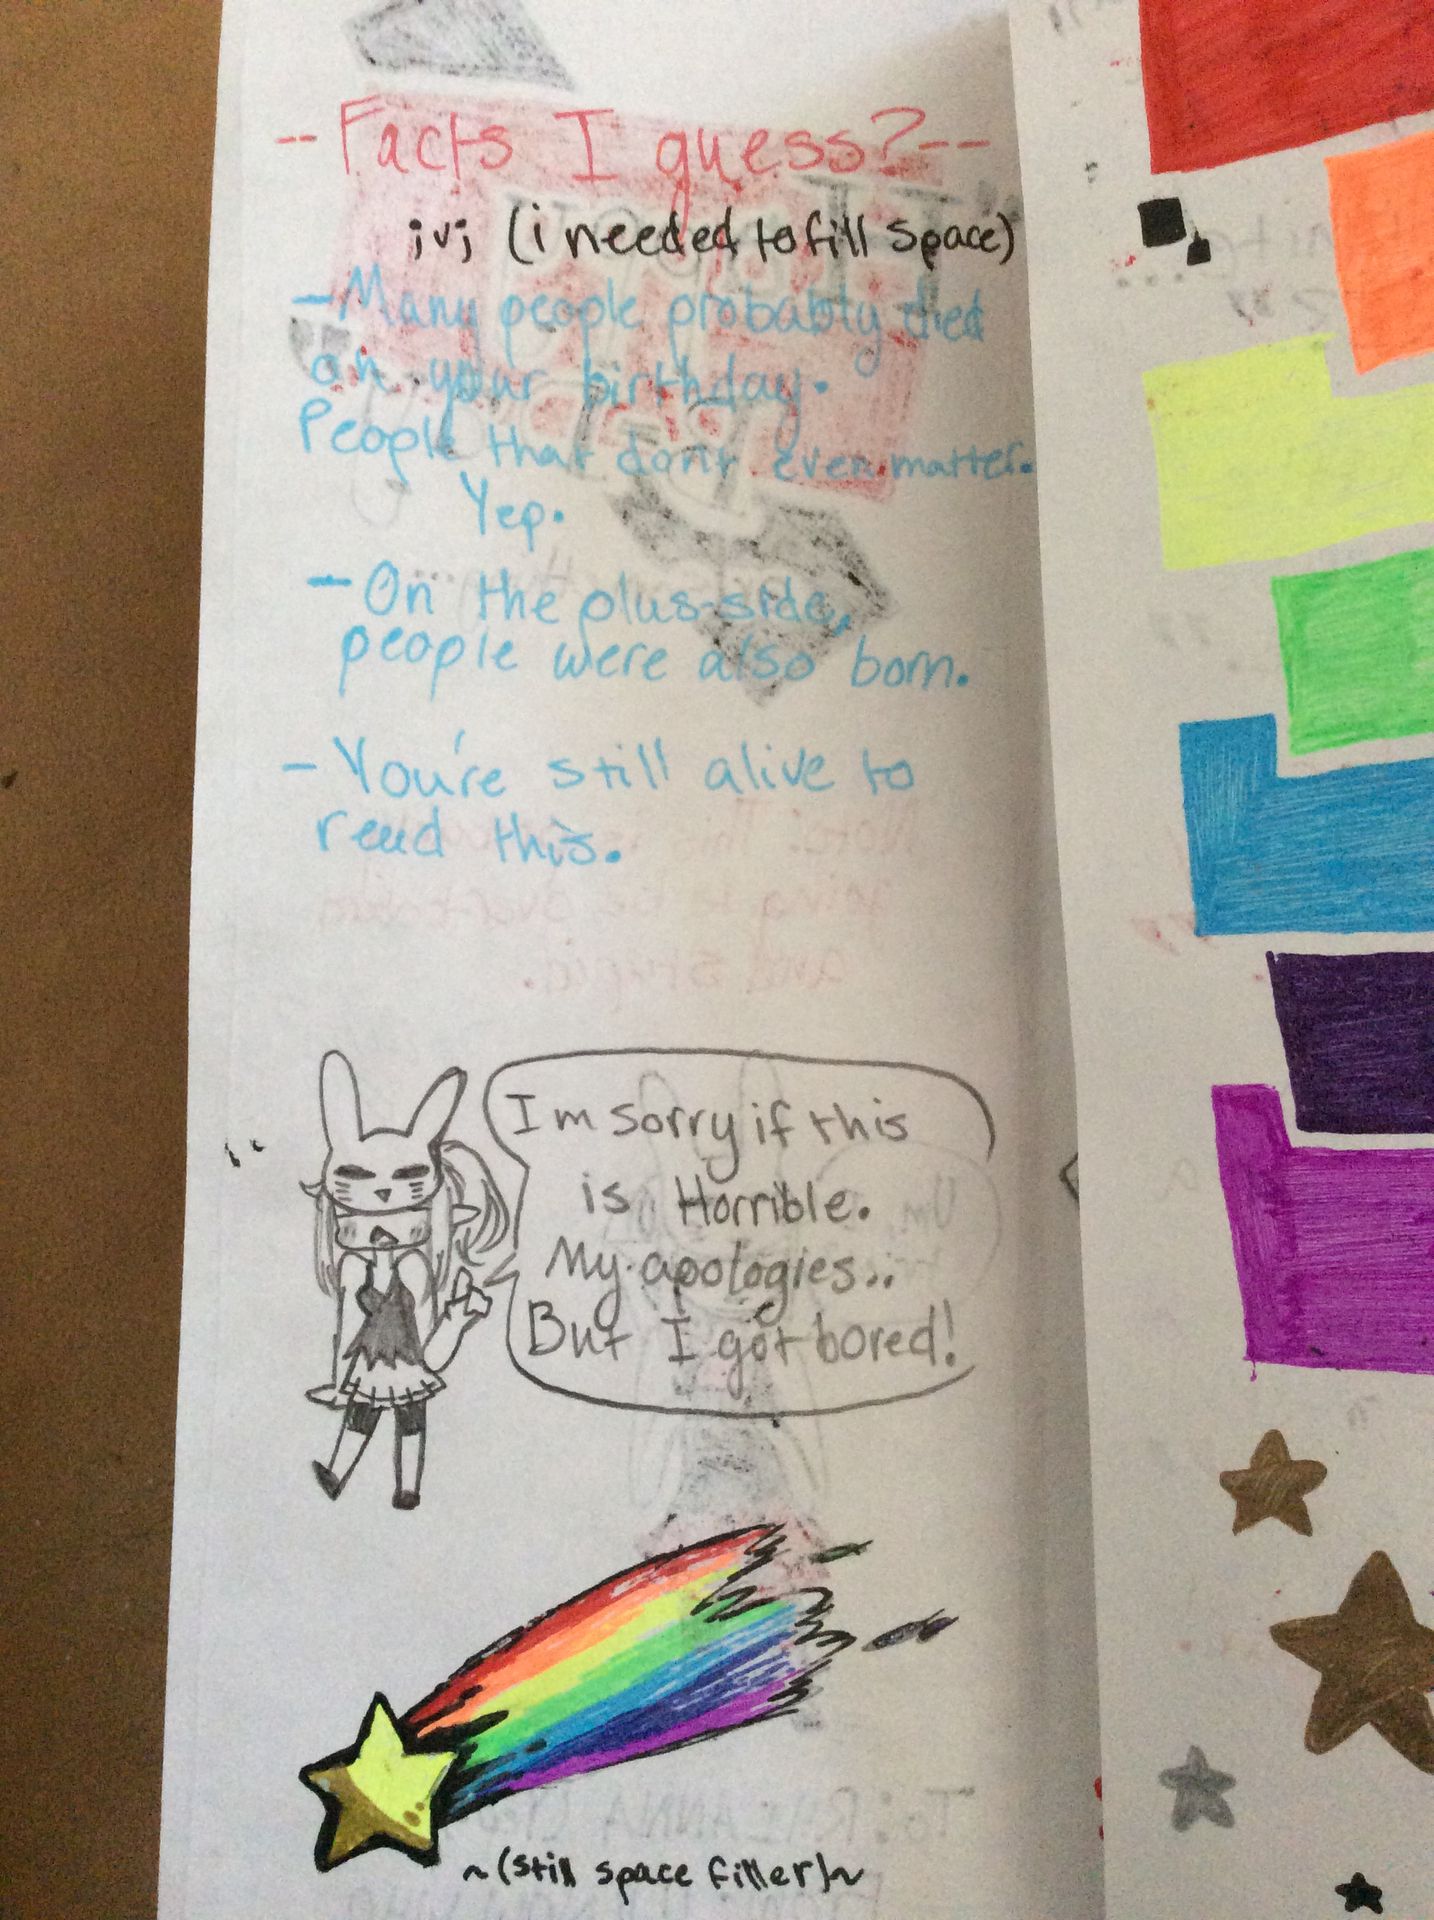 -- Facts I guess? --
;v; (i needed to fill space)
- Many people probably died
on your birthday.
People that don't even matter.
Yep.
- On the plus-side,
people were also born.
- You're still alive to
read this.
I'm sorry if this
is Horrible.
My apologies..
But I got bored!
~(still space filler)~